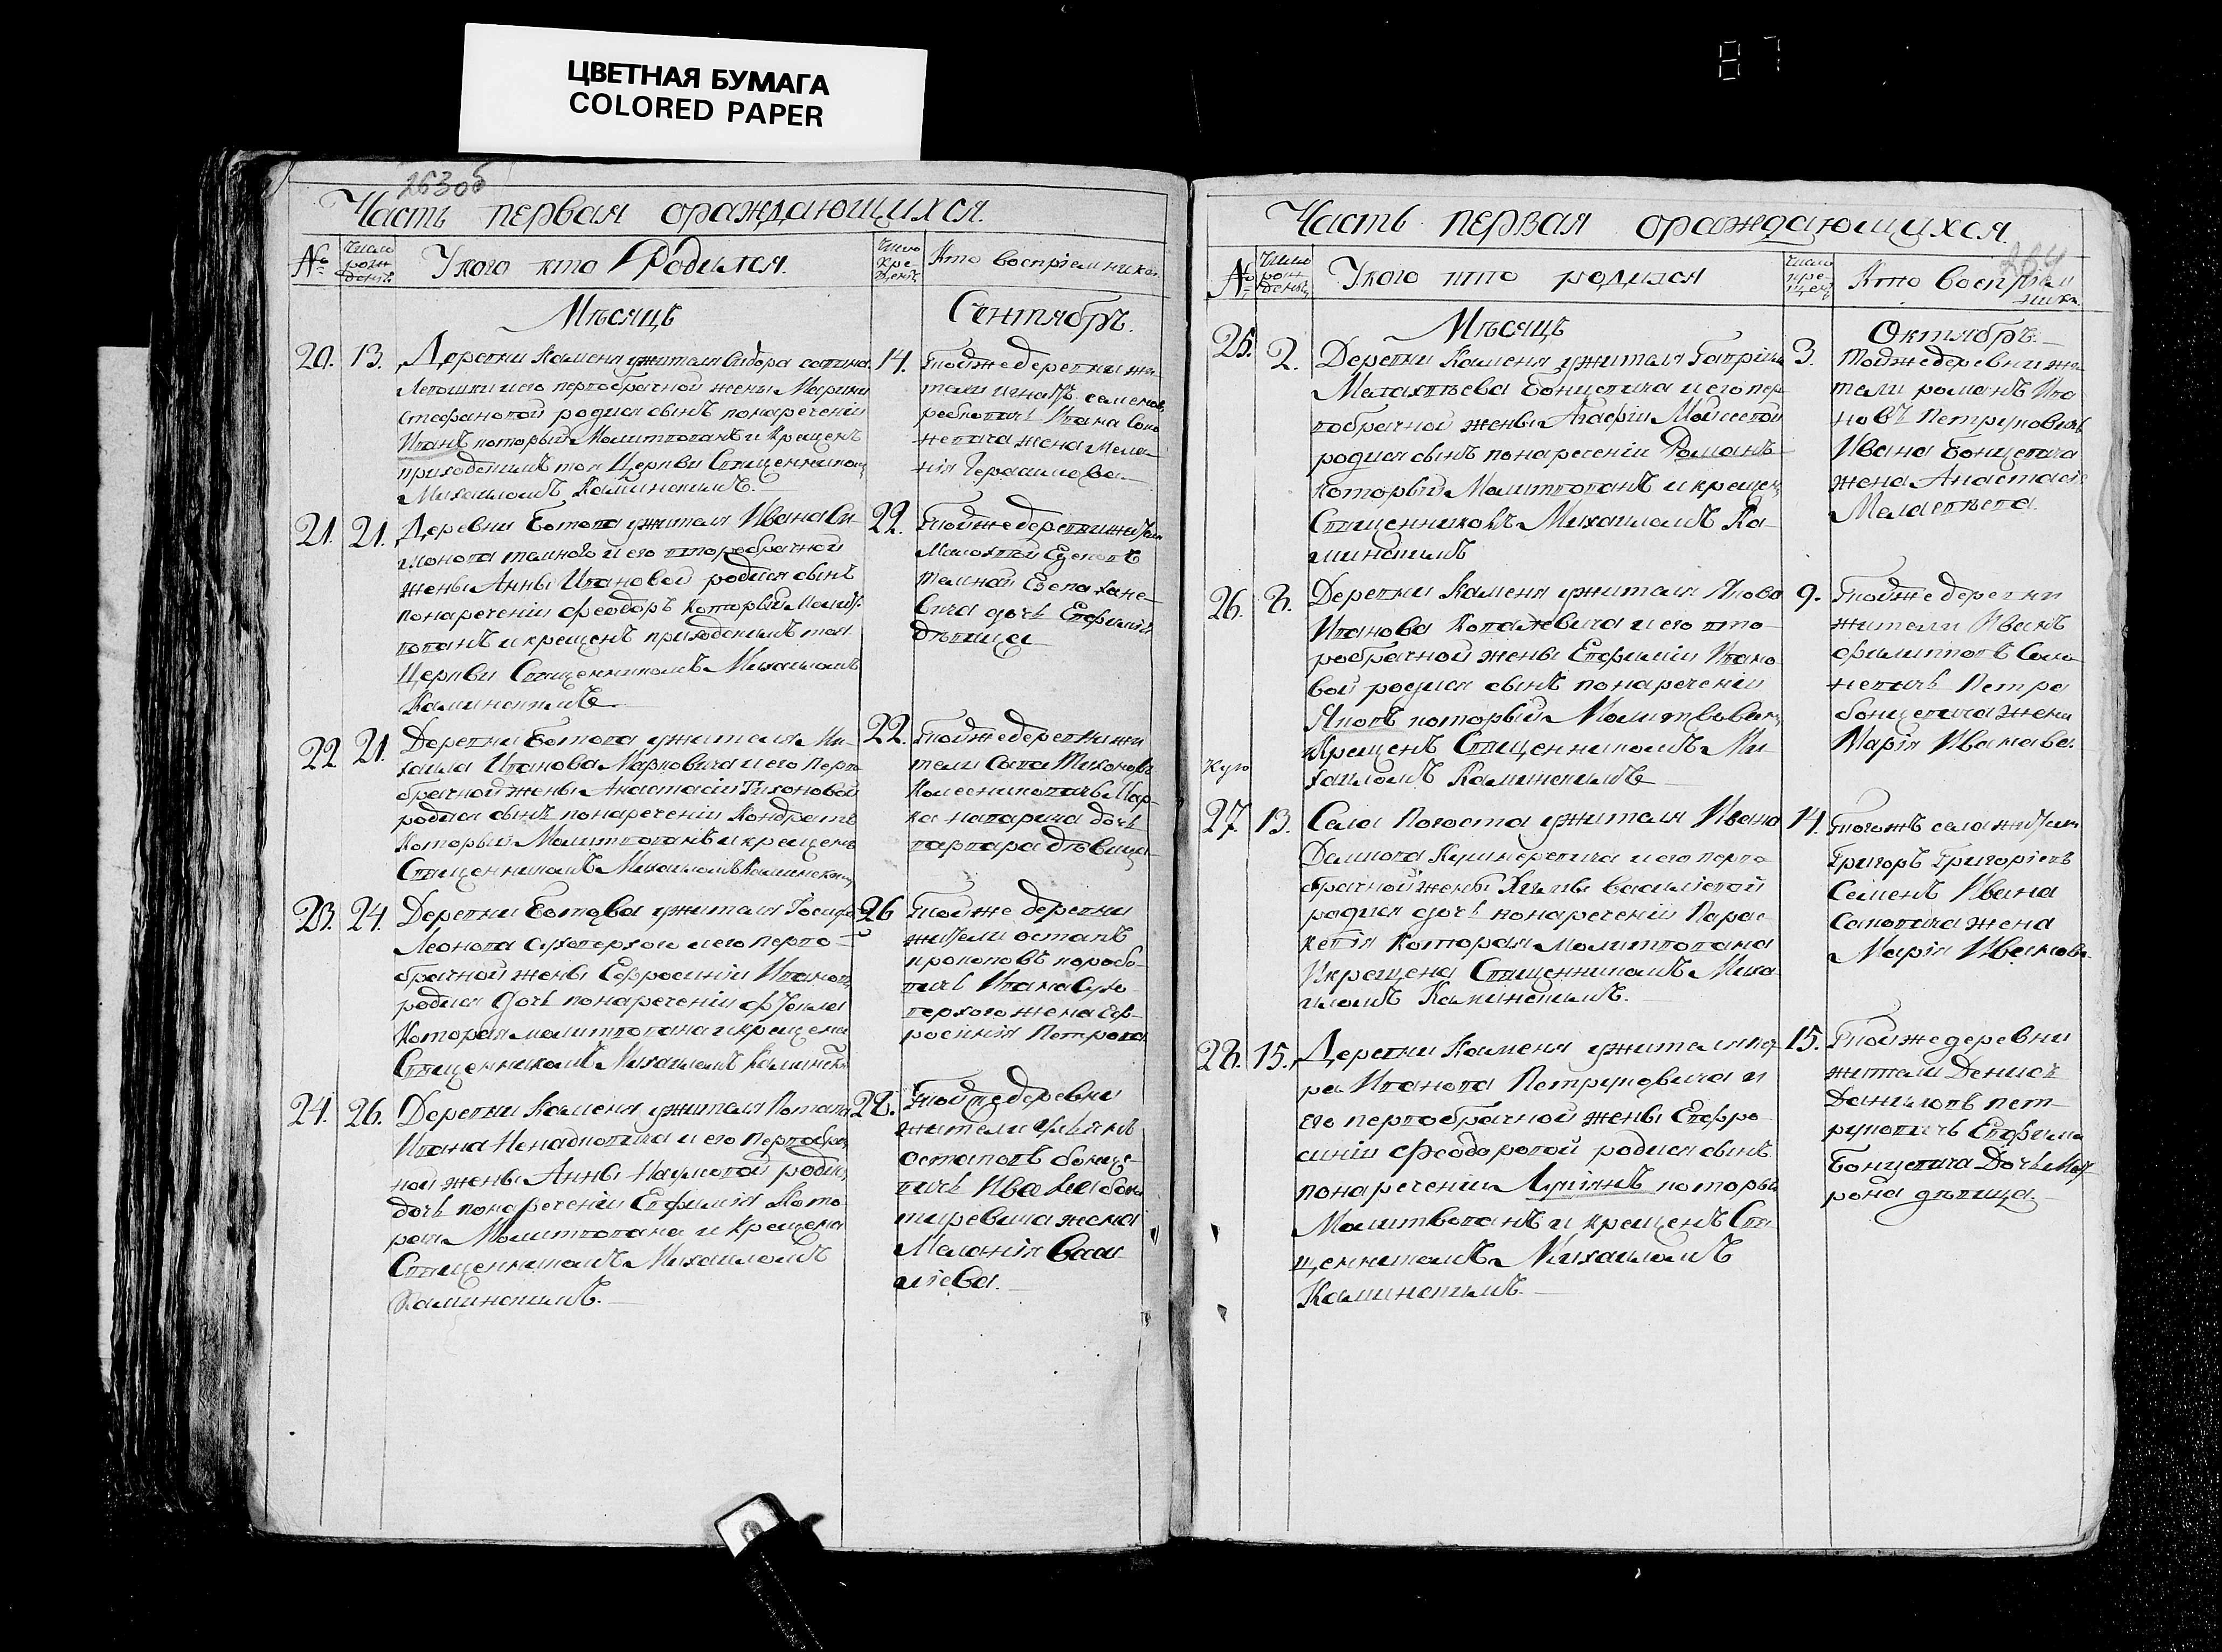 ЦВЕТНАЯ БУМАГА
COLORED PAPER
87
263об
Часть первая ораждающихся.
№ Число рожденія
У кого кто Родился.
Число крещен.
Кто воспріемники
Мѣсяцъ Сентябрь.
20. 13. Деревни Каменя ужителя Сидора
и его первобрачной жены Марины
Стефановой родися сынъ понареченіи
Иванъ который Молитвованъ и Крещенъ
приходскимъ тоя Церкви Священникомъ
Михаиломъ Каминскимъ.
14. Тойже деревни жи-
тели
Ивана
жена Мела-
нія Герасимова
21. 21. Деревни Ботова ужителя Ивана Си-
монова темного и его второбрачной
жены Анны Ивановой родися сынъ
понареченіи Феодоръ Который Молит-
вованъ и крещенъ приходскимъ тоя
Церкви Священникомъ Михаиломъ
Каминскимъ
22. Тойже деревни
темной
вича дочь Евфимія
дѣвица
22 21. Деревни Ботова ужителя Ми-
хаила Иванова Марковича и его Перво
брачной жены Анастасіи Тихоновой
родися сынъ понареченіи Кондратъ
Который Молитвованъ и крещенъ
Священникомъ Михаиломъ Каминским
22. Тойже деревни жи
тели Сава Тихоновъ
Колесниковичь Мар-
ка дочь
варвара дѣвица
23. 24. Деревни Ботова ужителя Іосифа
Леонова Суховерхого и его перво-
брачной жены Евфросиніи Иванов
родися дочь понареченіи
Которая молитвована и крещена
Священникомъ Михаиломъ Каминск
26 Тойже деревни
жители остапъ
прокоповъ коробо-
вичь Ивана Сухо-
верхого жена Евф-
росинія Петрова
24. 26. Деревни Каменя ужителя Потапа
Ивана и его Первобрач
ной жены Анны Наумовой родися
дочь понареченіи Евфимія Кото-
рая Молитвована и Крещена
Священникомъ Михаиломъ
Каминскимъ.
28. Тойже деревни
жители
остаповъ бонце-
вичь Ивана
жена
Меланія Васи
ліева.
264
Часть первая ораждающихся.
№ Число рожденія
У кого кто родился
Число крещен.
Кто воспріем ники
Мѣсяцъ Октябрь.
25. 2. Деревни Каменя ужителя Гавріила
Малахѣева Бонцевича и его пер
вобрачной жены Агафіи Мойсеевой
родися сынъ понареченіи Романъ
который Молитвованъ и крещен
Священникомъ Михаиломъ Ка-
минскимъ
3. Тойже деревни жи-
тели романъ Ива
новъ Петруковичь
Ивана Бонцевича
жена Анастасія
26. 8. Деревни Каменя ужителя Якова
Иванова и его вто-
робрачной жены Евфиміи Ивано
вой родися сынъ понареченіи
Яковъ который Молитвован
и Крещенъ Священникомъ Ми
хаиломъ Каминскимъ
9. Тойже деревни
жители Иванъ
филиповъ Само-
невичь Петра
бонцевича жена
Марія Иванова.
27. 13. Села Погоста ужителя Ивана
Данилова и его перво
брачной жены Василіевой
родися дочь понареченіи Парас-
кевія Которая молитвована
И крещена Священникомъ Миха
иломъ Каминскимъ.
14. Тогожъ села жители
Григоръ Григоріевъ
Семенъ Ивана
Савовича жена
Марія Иванова.
28. 15. Деревни Каменя ужителя
ра Иванова Петруковича и
его первобрачной жены Евфро
синіи Феодоровой родися сынъ
понареченіи Лукіянъ который
Молитвованъ и крещенъ Свя
щенникомъ Михаиломъ
Каминскимъ.
15. Тойже деревни
жители Денисъ
Даниловъ пет-
руковичь Евфима
Бонцевича Дочь Мат
рона дѣвица.